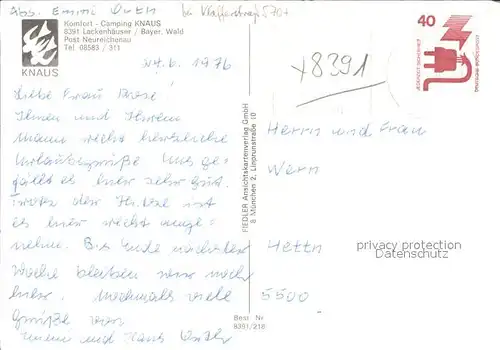 Abs. Emmi
Komfort - Camping KNAUS
8391 Lackenhäuser / Bayer. Wald
Post Neureichenau
Tel 08583 / 311
KNAUS
27.6. 1976
Liebe Frau
Ihnen und Ihrem
Mann recht herzliche
Urlaubsgrüße. Uns ge-
fällt es hier sehr gut.
Trotz der Hitze ist
es hier recht ange-
nehm. Bis Ende nächster
Woche bleiben wir noch
hier. Nochmals viele
Grüße von
Emmi und Hans
FIEDLER Ansichtskartenverlag GmbH
8 München 2, Linprunstraße 10
Best Nr
8391/218
40
JEDERZEIT SICHERHEIT
DEUTSCHE BUNDESPOST
8391
Herrn und Frau
Wern
privacy protection
Datenschutz
5500